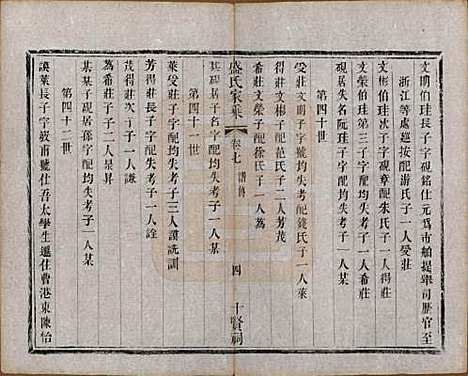 文明伯珪長子字硯銘仕元爲市舶提舉司歷官至
浙江等處巡按配游氏子一人受莊
文彬伯珪次子字硯章配朱氏子一人得莊
文榮伯珪第三子字配均失考子一人希莊
硯居失名阮珪子配均失考子一人某
第四十世
受莊文明子字號均失考配錢氏子一人萊
得莊文彬子配范氏子二人芳茂
希莊文榮子配徐氏子一人爲
盛氏家乘
卷七
譜傳
四
十賢祠
某硯居子名字配均失考子一人某
第四十一世
萊受莊子字配均失考子三人謨洗訓
芳得莊長子字配均失考子一人詮
茂得莊次子子一人謙
爲希莊子字配均失考子一人某
某某子硯居孫字配均失考子一人某
第四十二世
謨萊長子字彼甫號仕吾太學生遷住曹港東陳怡